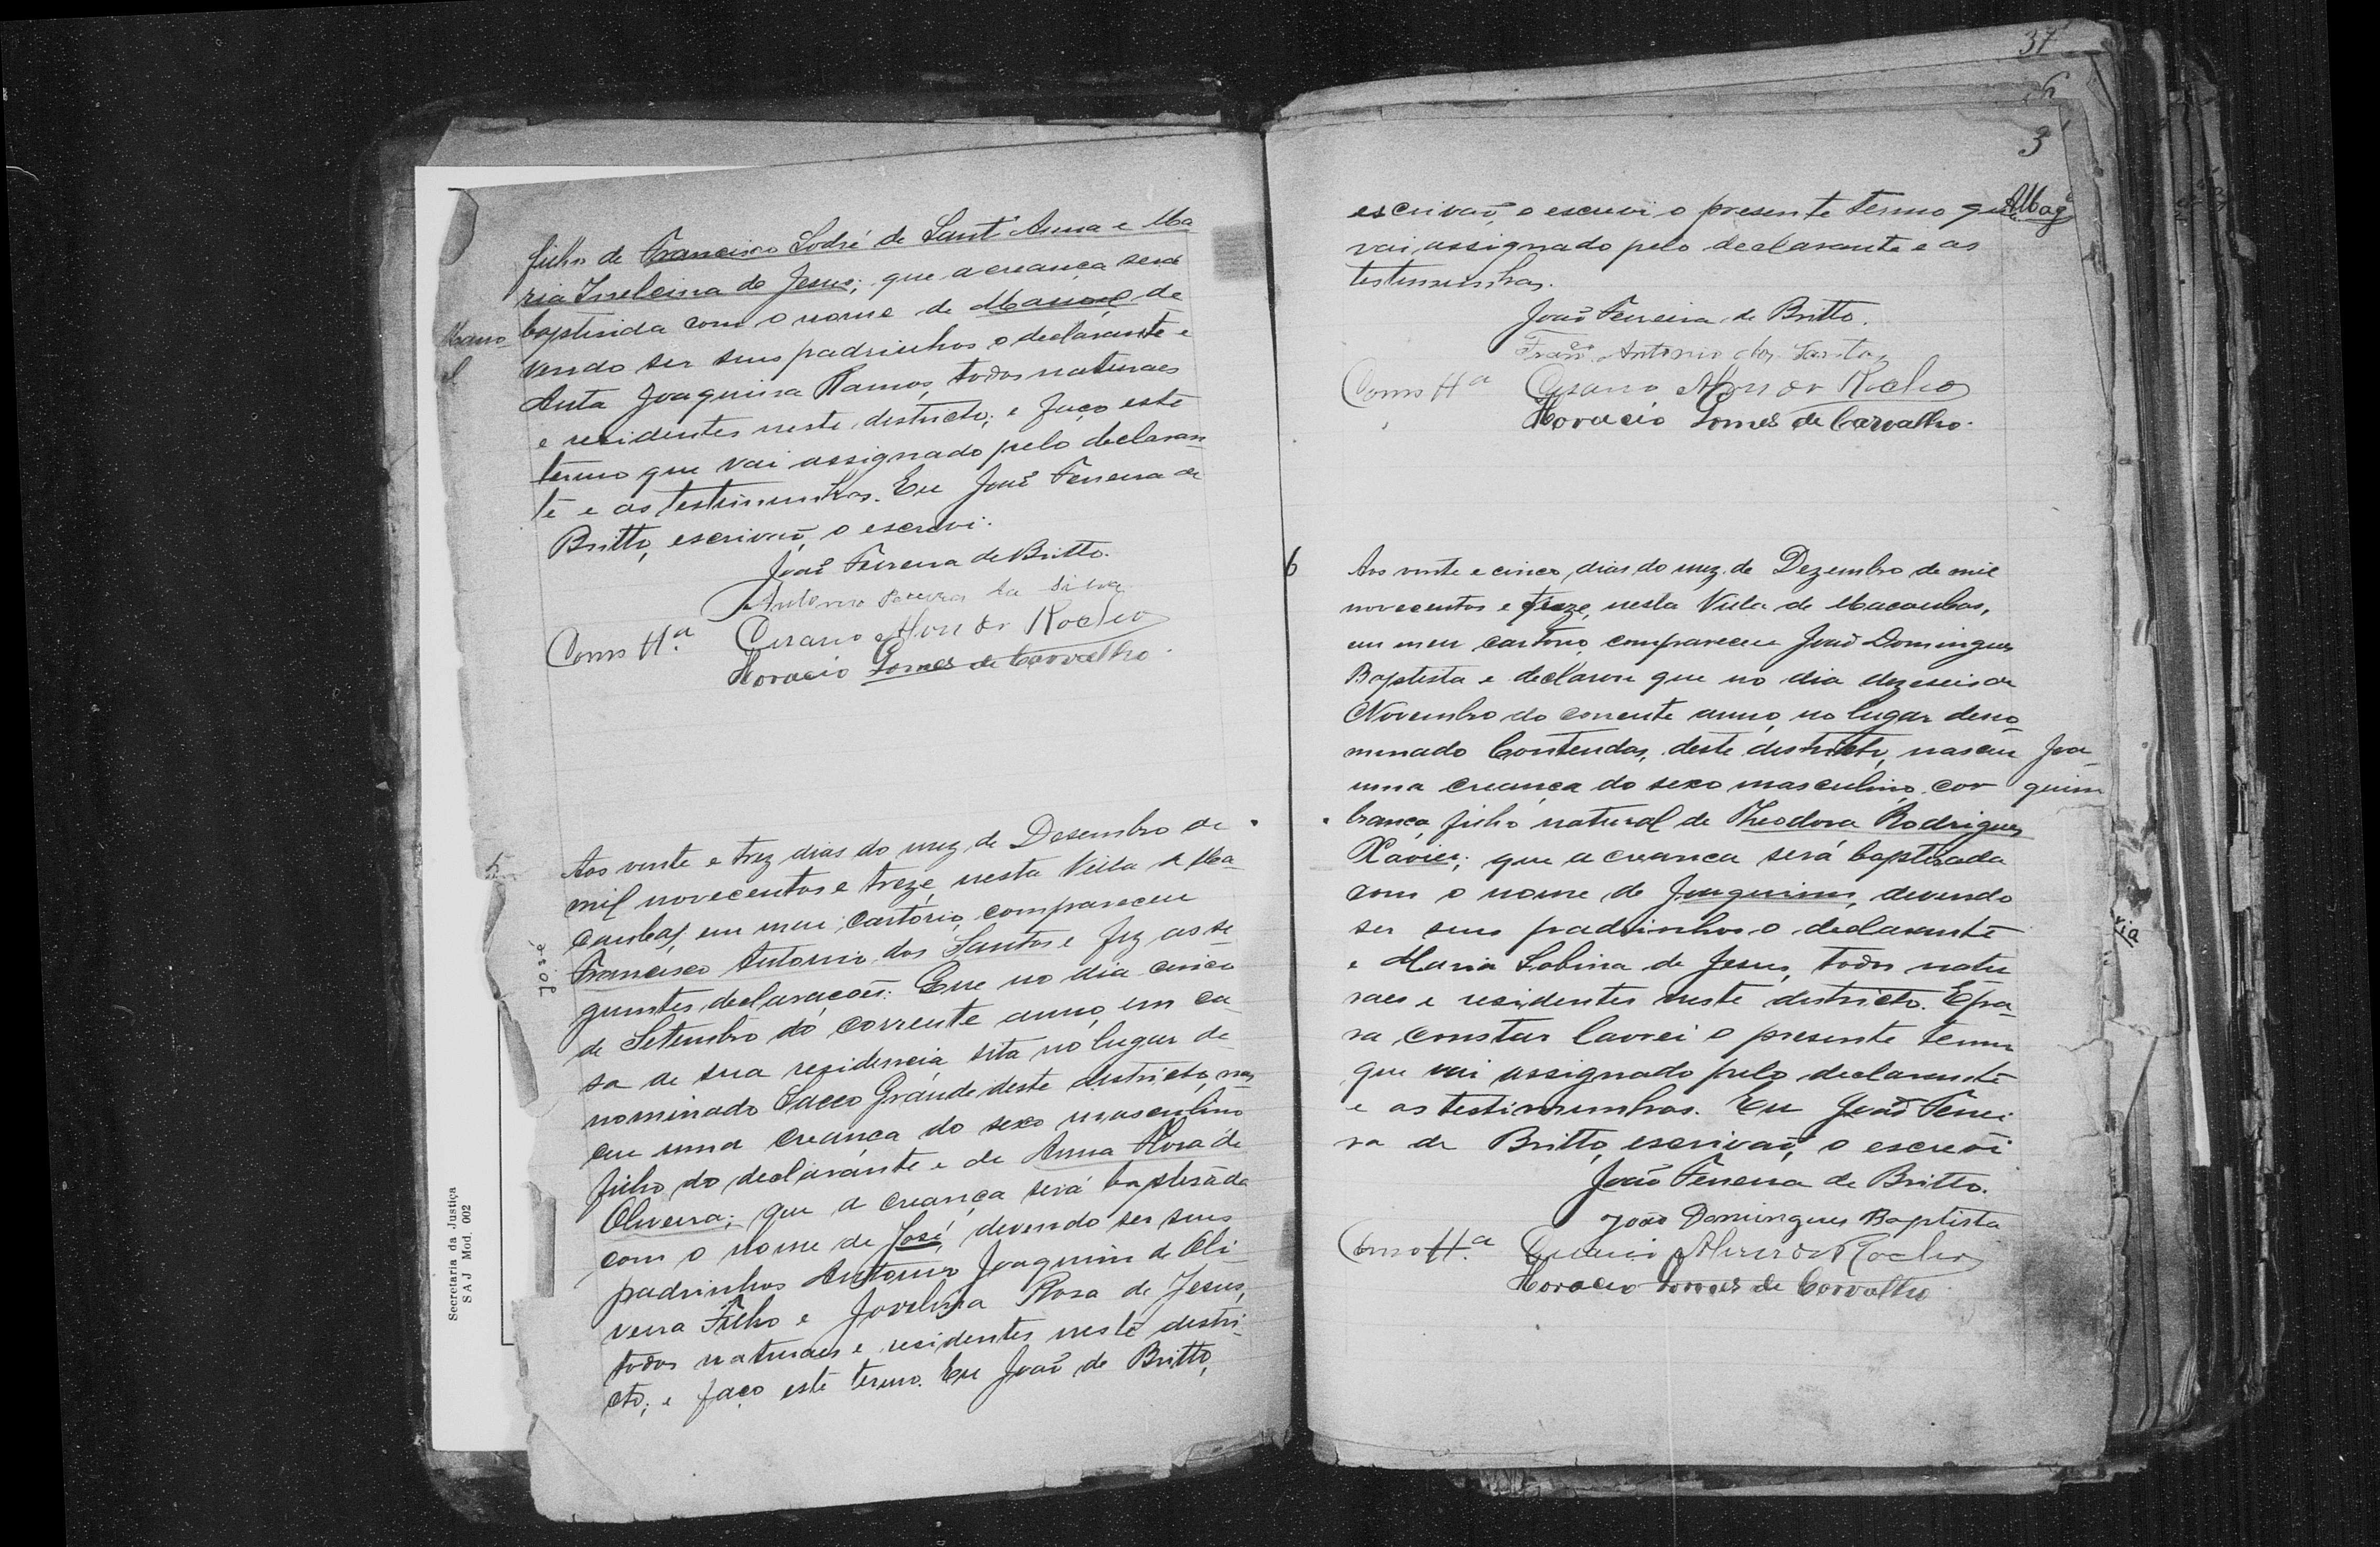 filho de Francisco Sodré de Sant'Anna e Ma
ria de Jesus; que a creança será
baptisada com o nome de Manoel, de
Mano
el
vendo ser seus padrinhos o declarante e
Anta Joaquina Ramos, todos naturaes
e residentes neste districto; e faço este
termo que vai assignado pelo declaran
te e as testimunhas. Eu João Ferreira de
Britto, escrivaõ, o escrevi.
João Ferreira de Britto.
Antonio Pereira da Silva
Como Hª Rocha
Horacio Gomes de Carvalho.
5
Aos vinte e trez dias do mez de Desembro de
mil novecentos e treze, nesta Villa de Ma
caubas, em meu cartorio, compareceu
Francisco Antonio dos Santos e fez as se
José
guintes declarações: Que no dia cinco
de Setembro do corrente anno, em ca
sa de sua residencia, sita no lugar de
nominado Sacco Grande deste districto, nas
ceu uma creança do sexo masculino
filho do declarante e de Anna Rosa de
Oliveira; que a creança será baptisada
com o nome de José, devendo ser seus
padrinhos Antonio Joaquim de Oli
veira Filho e Jovelina Rosa de Jesus,
todos naturaes e residentes neste distri
cto; e faço este termo. Eu João de Britto,
Secretaria da Justiça
SAJ Mod. 002
37
3
escrivaõ, o escrevi o presente termo que
vai assignado pelo declarante e as
testimunhas.
João Ferreira de Britto.
Franᶜᵒ Antonio dos Santos
Como Hª Rocha
Horacio Gomes de Carvalho.
6
Aos vinte e cinco dias do mez de Dezembro de mil
novecentos e treze, nesta Villa de Macaubas,
em meu cartorio, compareceu João Domingues
Baptista e declarou que no dia dezeseis de
Novembro do corrente anno, no lugar deno
minado Contendas, deste districto, nasceu
Joa
quim
uma creança do sexo masculino, cor
branca, filho natural de Theodora Rodrigues
Xavier; que a creanca será baptisada
com o nome de Joaquim, devendo
ser seus padrinhos o declarante
e Maria Sabina de Jesus, todos natu
raes e residentes neste districto. E pa
ra constar lavrei o presente termo
que vai assignado pelo declarante
e as testimunhas. Eu João Ferrei
ra de Britto, escrivaõ, o escrevi
João Ferreira de Britto.
João Domingues Baptista
Como Hª Rocha
Horacio Gomes de Carvalho